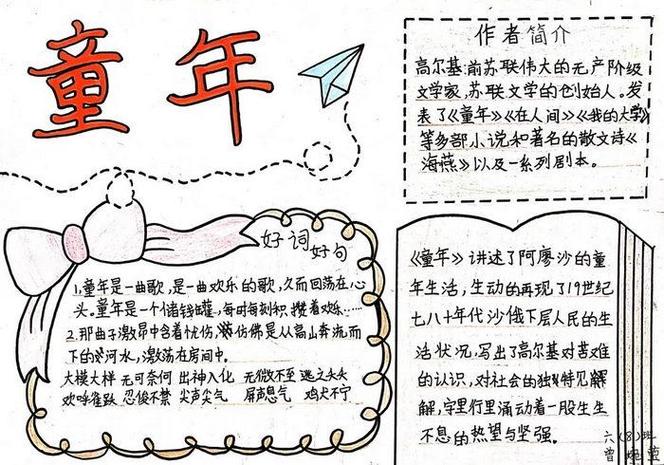 童年
作者简介
高尔基:前苏联伟大的无产阶级
文学家,苏联文学的创始人。发
表了《童年》《在人间》《我的大学》
等多部小说和著名的散文诗《
海燕》以及一系列剧本。
好词
好句
1.童年是一曲歌,是一曲欢乐的歌,久而回荡在心
头。童年是一个储钱罐,每时每刻积攒着欢乐……
2.那曲子激昂中含着忧伤,仿佛是从高山奔流而
下的河水,激荡在房间中。
大模大样 无可奈何 出神入化 无微不至 逃之夭夭
欢呼雀跃 忍俊不禁 尖声尖气 屏声息气 鸡犬不宁
《童年》讲述了阿廖沙的童
年生活,生动的再现了19世纪
七八十年代沙俄下层人民的生
活状况,写出了高尔基对苦难
的认识,对社会的独特见解
解,字里行里涌动着一股生生
不息的热望与坚强。
六(8)班
曾婉